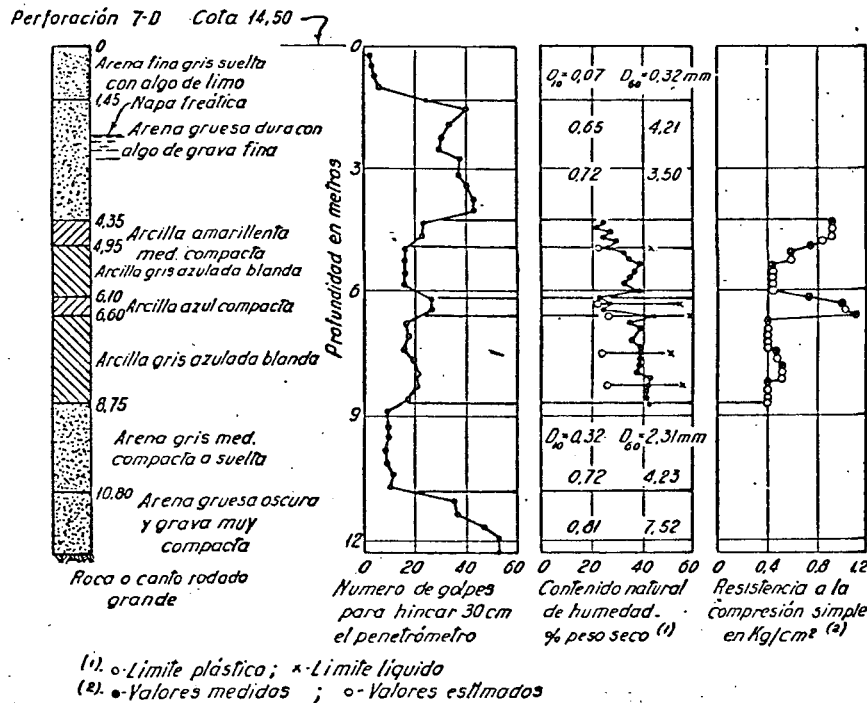 Perforación 7-D Cota 14,50
0
Arena fina gris suelta
con algo de limo
1,45
Napa freática
Arena gruesa dura con
algo de grava fina
4,35
Arcilla amarillenta
med. compacta
4,95
Arcilla gris azulada blanda
6,10
Arcilla azul compacta
6,60
Arcilla gris azulada blanda
8,75
Arena gris med.
compacta a suelta
10,80
Arena gruesa oscura
y grava muy
compacta
Roca o canto rodado
grande
Profundidad en metros
0
3
6
9
12
0 20 40 60
Numero de golpes
para hincar 30 cm
el penetrómetro
D10=0,07 D60=0,32 mm
0,65 4,21
0,72 3,50
D10=0,32 D60=2,31 mm
0,72 4,23
0,81 7,52
0 20 40 60
Contenido natural
de humedad.
% peso seco (1)
0 0,4 0,8 1,2
Resistencia a la
compresión simple
en Kg/cm² (2)
(1). o-Límite plástico; x-Límite líquido
(2). ●-Valores medidos ; o-Valores estimados